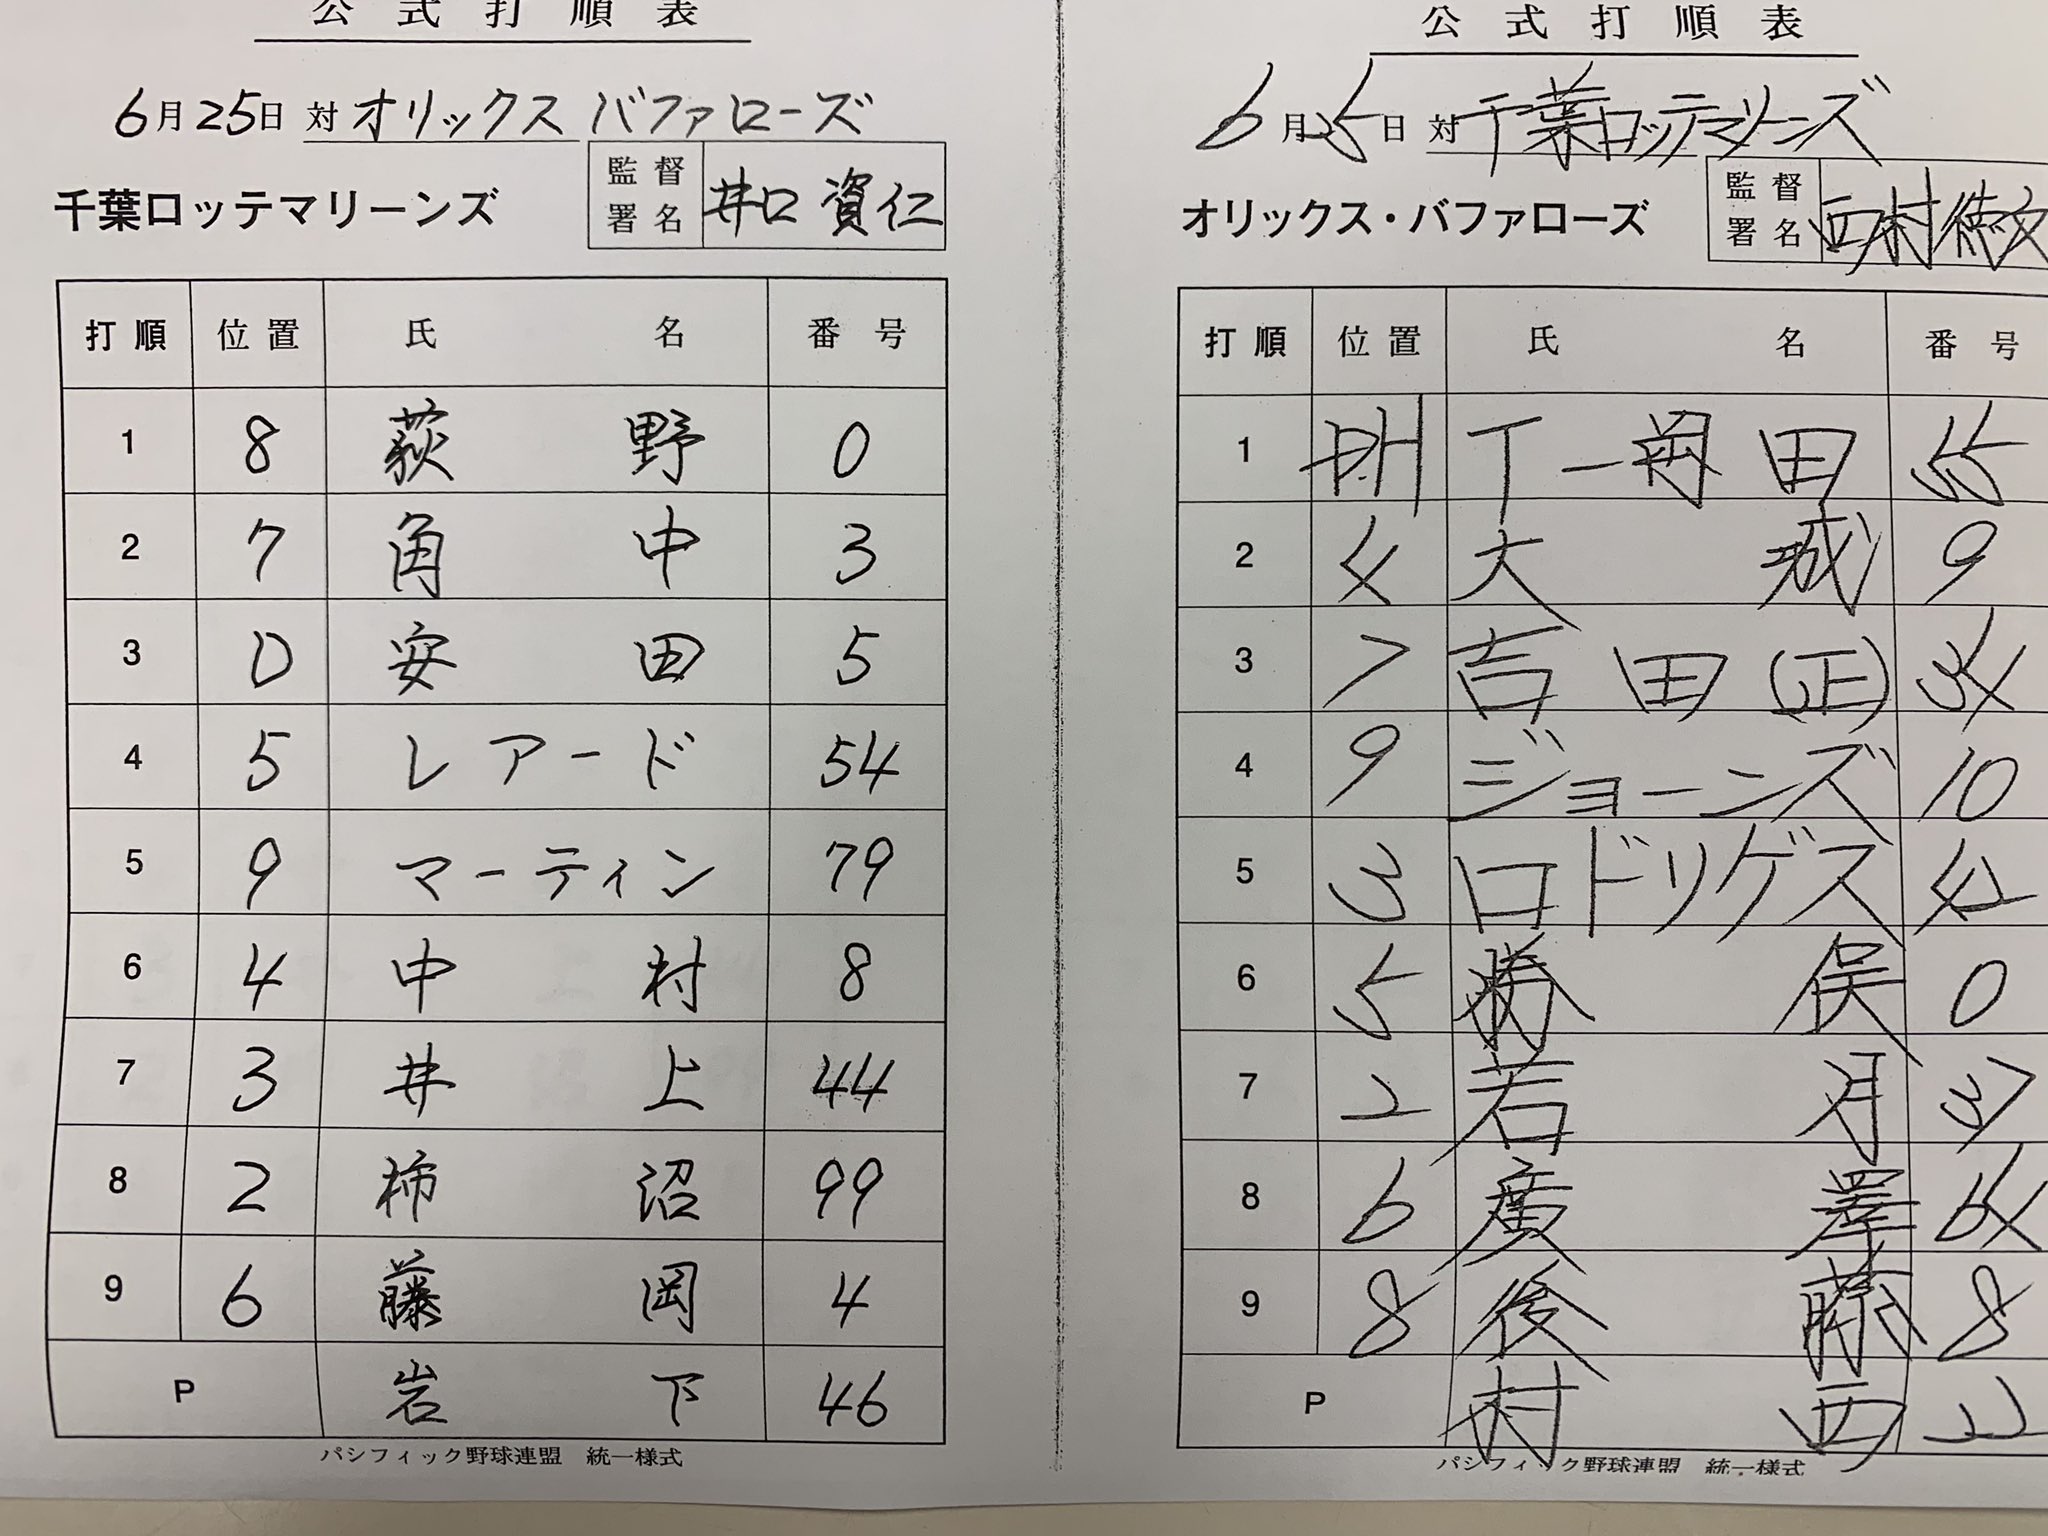 公式打順表
6月25日 対 オリックス バファローズ
千葉ロッテマリーンズ
監督署名 井口 資仁
打順 位置 氏名 番号
1 8 荻野 0
2 7 角中 3
3 D 安田 5
4 5 レアード 54
5 9 マーティン 79
6 4 中村 8
7 3 井上 44
8 2 柿沼 99
9 6 藤岡 4
P 岩下 46
パシフィック野球連盟 統一様式
公式打順表
6月25日 対 千葉ロッテマリーンズ
オリックス・バファローズ
監督署名 西村徳文
打順 位置 氏名 番号
1 DH T-岡田 55
2 4 大城 9
3 7 吉田(正) 34
4 9 ジョーンズ 10
5 3 ロドリゲス 42
6 5 勝俣 0
7 2 若月 37
8 6 廣澤 64
9 8 後藤 8
P 村西 22
パシフィック野球連盟 統一様式